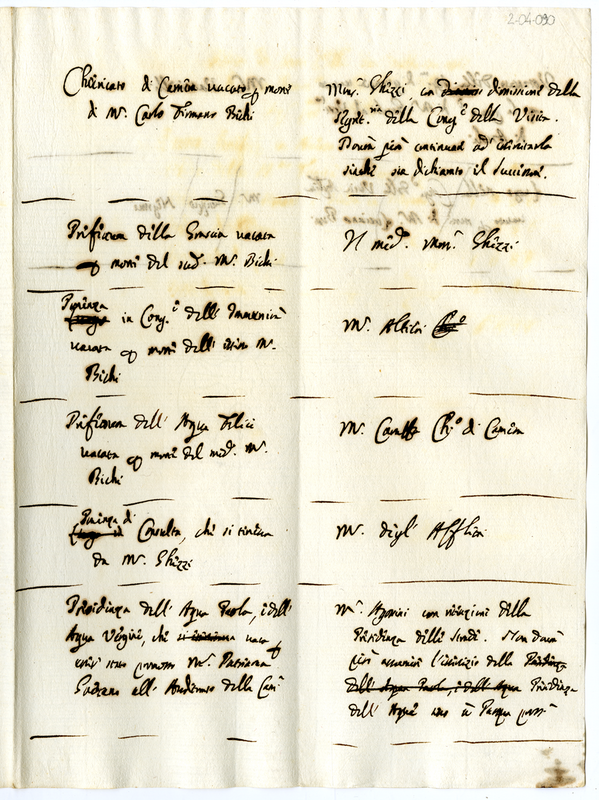 2-04-090
Chiericato di Camera vacato per morte
di Mr. Carlo Firmano Bichi
Monsr. Ghizzi, con dimissione della
della Congne. della Visita.
Dovrà però continuare ad esercitarla
sinchè sia dichiarato il Successore.
Prefettura della Grascia vacata
per morte del sudo. Mr. Bichi
Il medo. Monsr. Ghizzi
Ponenza
in Congne. dell' Immunità
vacata per morte dell' istesso Mr.
Bichi
Mr. Altieri
Prefettura dell' Acqua Felice
vacata per morte del medo. Mr.
Bichi
Mr. Caraffa Cho. di Camera
Ponenza di
Consulta, che si teneva
da Mr. Ghizzi
Mr. degl' Afflitti
Presidenza dell' Acqua Paola, e dell'
Acqua Vergine, che vaca per
esser stato promosso Mr.
all' Auditorato della Camera
Mr. con ritenzione della
Presidenza delle Strade. Non dovrà
però assumere l'esercizio della Presidenza
dell' Acqua Paola, e dell' Acqua Presidenza
dell' Acque sino a Pasqua